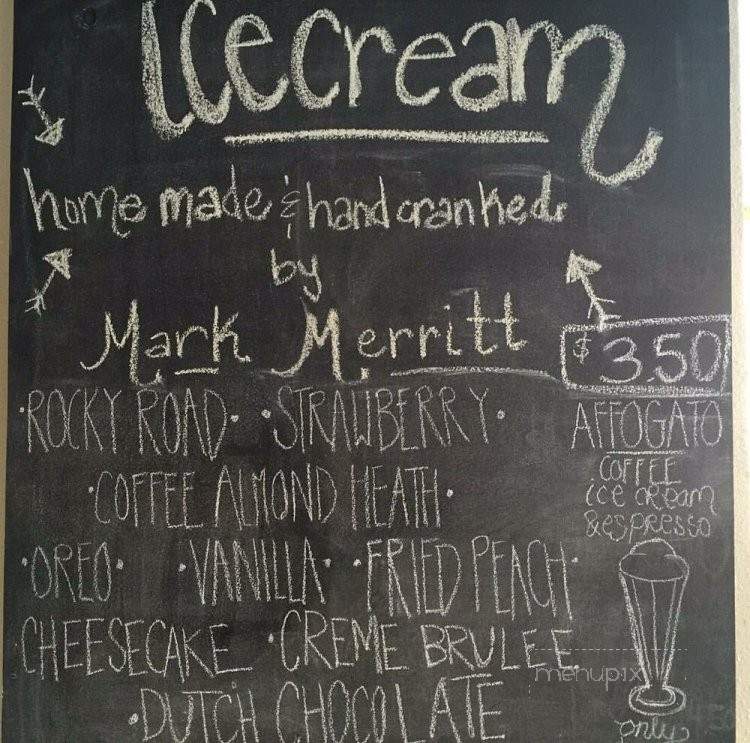 Icecream
home made & handcranked
by
Mark Merritt
$3.50
·ROCKY ROAD· ·STRAWBERRY·
·COFFEE ALMOND HEATH·
·OREO· ·VANILLA· ·FRIED PEACH·
CHEESECAKE ·CREME BRULEE
·DUTCH CHOCOLATE
AFFOGATO
COFFEE
ice cream
& espresso
only
menupix